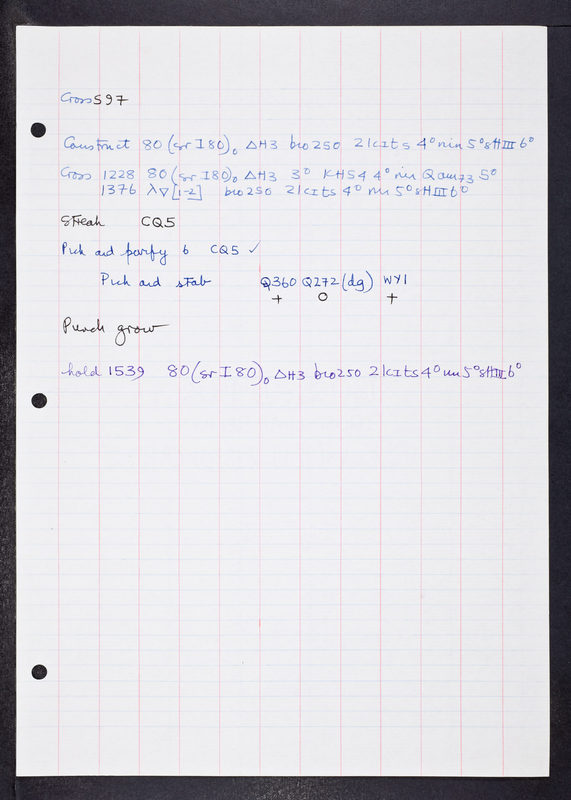 Cross 597
Construct 80 (sr I 80)₀ ΔH3 bio250 21cIts 4° nin 5° sHIII 6°
Cross 1228 80 (sr I80)₀ ΔH3 3° KH54 4° nin Q am73 5°
1376 λ∇ [1-2] bio250 21cIts 4° nin 5° sHIII 6°
Streak CQ5
Pick and purify 6 CQ5 ✓
Pick and stab Q360 Q272 (dg) WY1
+ O +
Punch grow
hold 1539 80 (sr I 80)₀ ΔH3 bio250 21cIts 4° nin 5° sHIII 6°